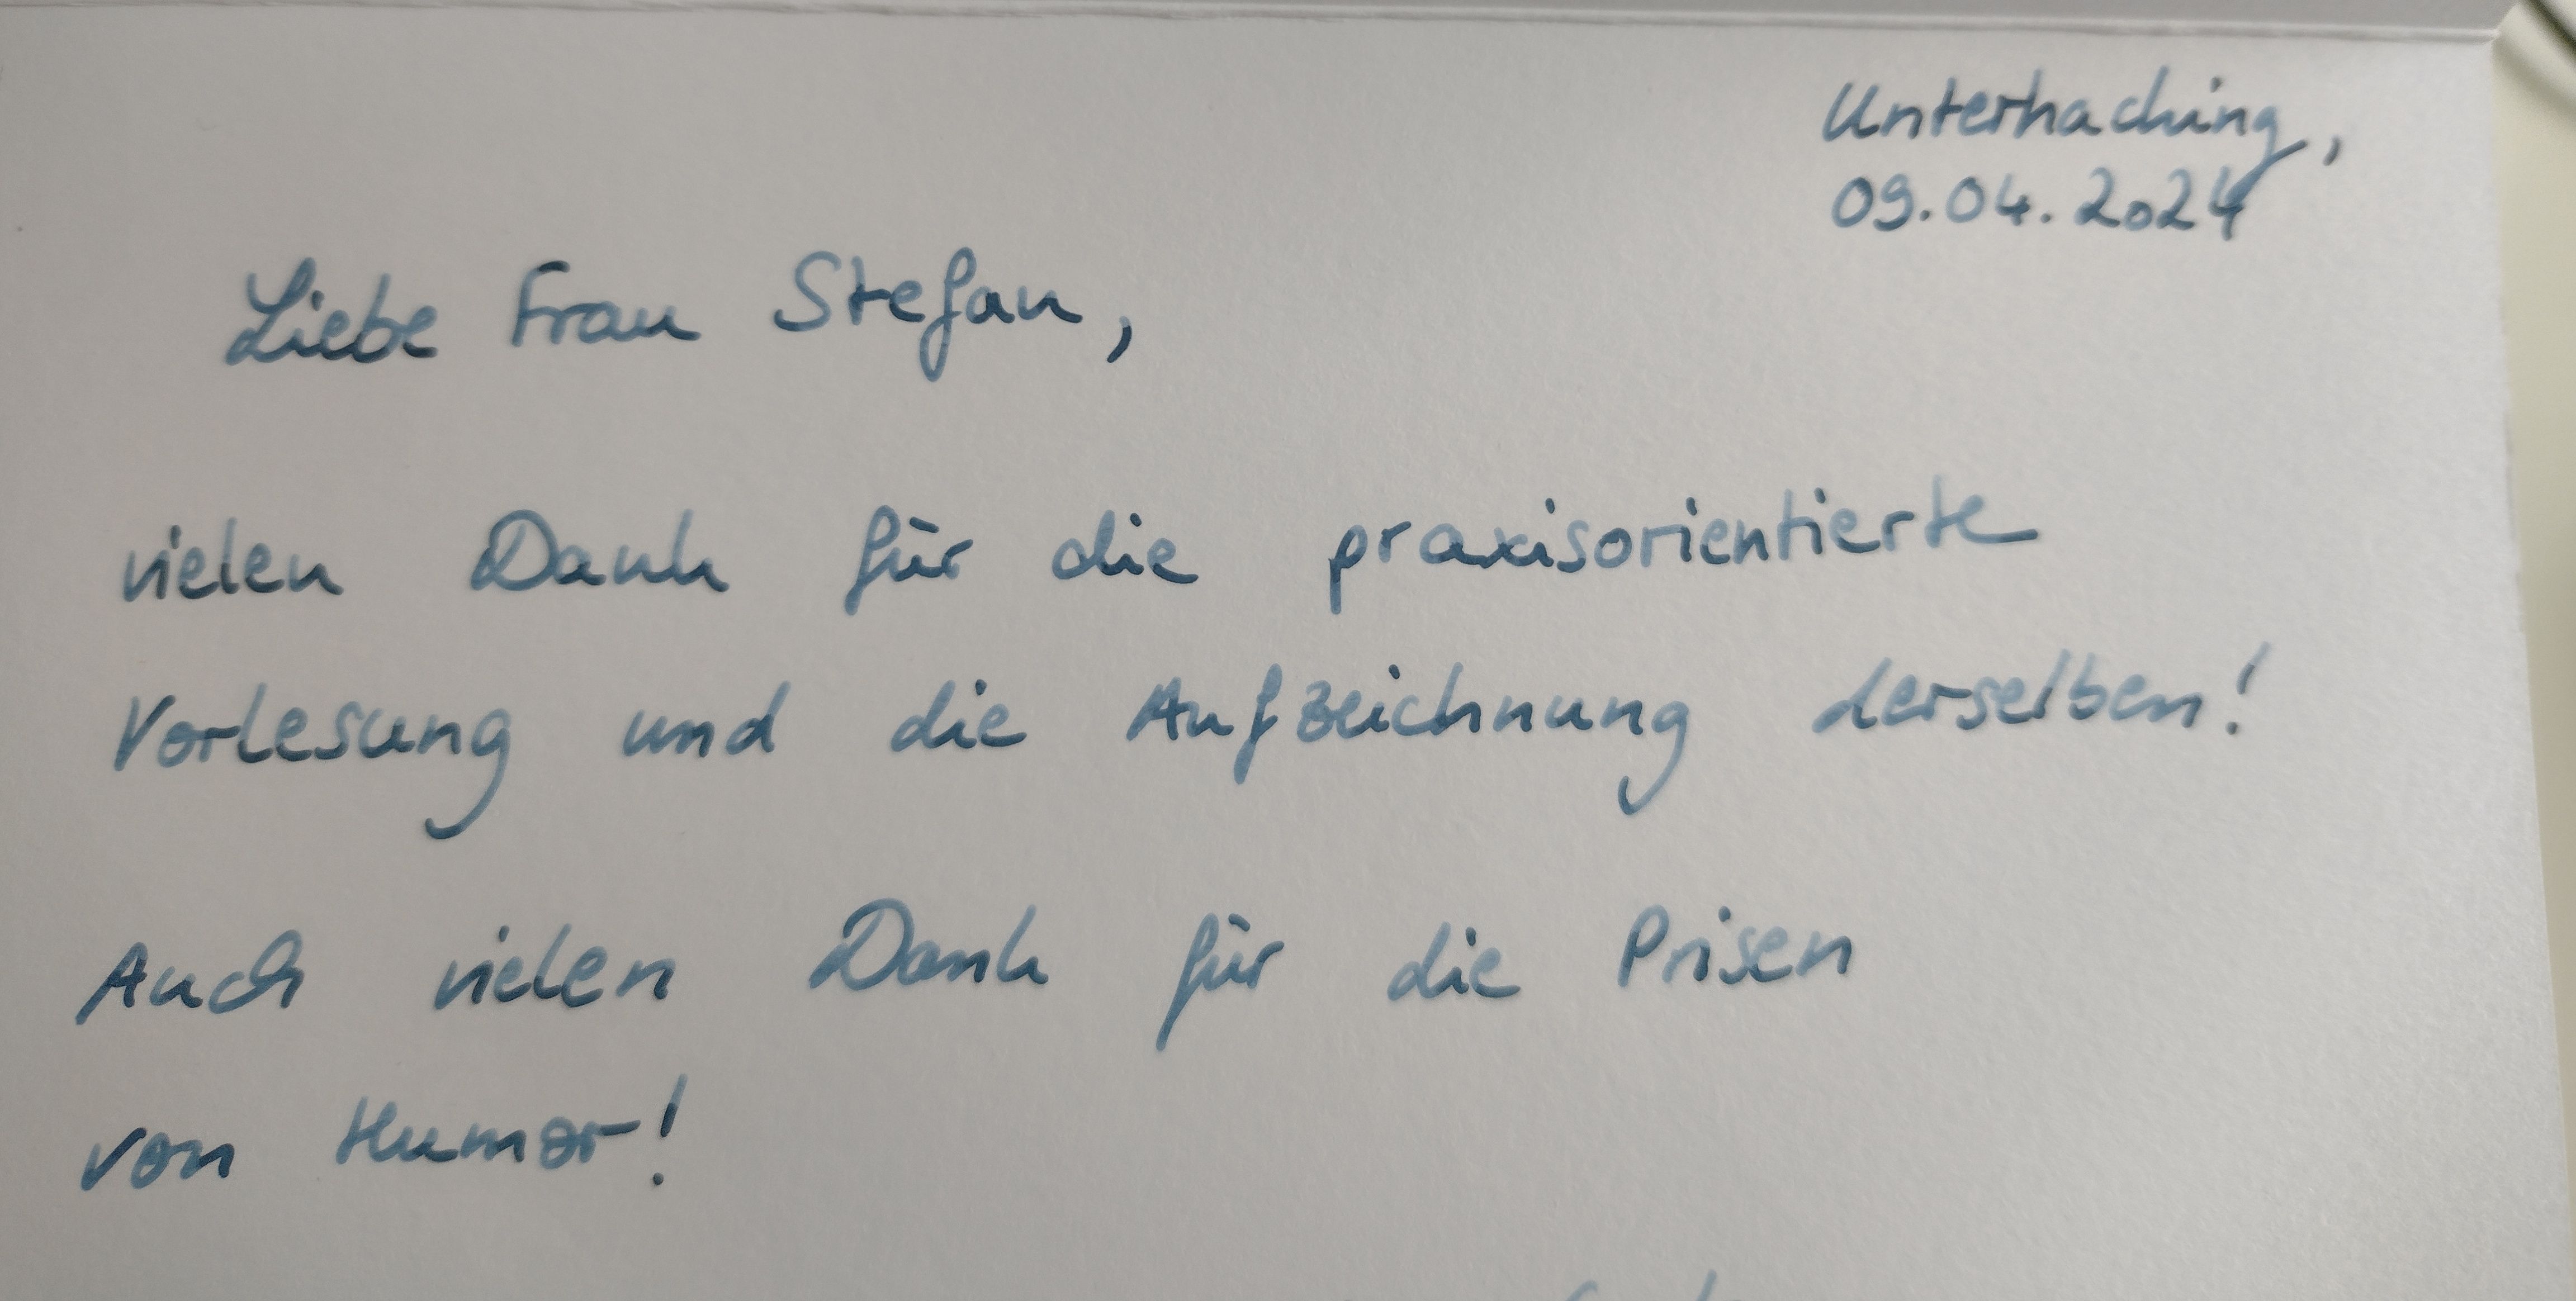 Unterhaching,
09.04.2024
Liebe Frau Stefan,
vielen Dank für die praxisorientierte
Vorlesung und die Aufzeichnung derselben!
Auch vielen Dank für die Prisen
von Humor!